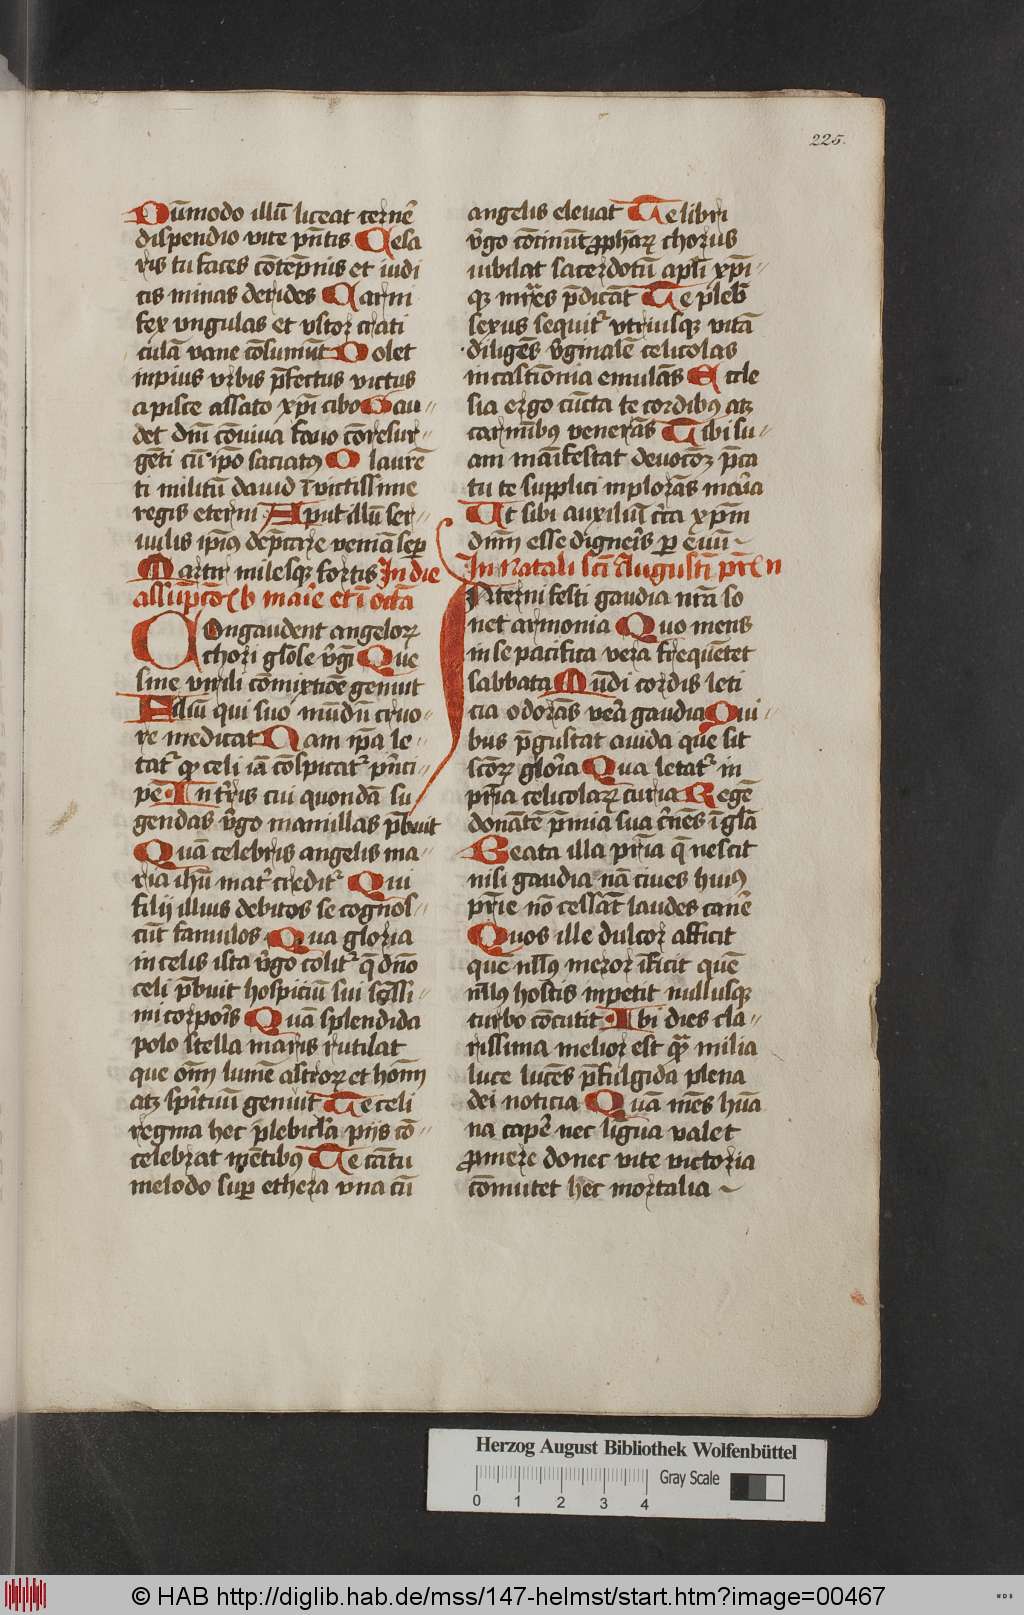 225.
Dūmodo illū liceat cernē
dispendio vite pn̄tis Cesa
ris tu faces cōtēpnis et iudi
cis minas derides Carni
fex vngulas et vstor crati
culā vane cōsumūt Dolet
inpius vrbis p̄fectus victus
a pisce assato xp̄i cibo Gau-
det dn̄i cōuiua fauo cōresur-
gēti cū ip̄o saciatꝰ O laurē
ti militū dauid īvictissime
regis eterni Aput illū ser-
uulis ip̄iꝰ dep̄care veniā semꝑ
Martir milesqꝫ fortis In die
assūpcōis b marie et ī octā
Congaudent angeloꝝ
chori gl̄ose v̄gī Que
sine virili cōmixtiōe genuit
Filiū qui suo mūdū cruo-
re medicat Nam ip̄a le-
tatᷣ qꝫ celi iā cōspicatᷣ pn̄ci-
pē In t̄ris cui quondā su
gendas v̄go mamillas p̄buit
Quā celebris angelis ma-
ria ih̄u matᷣ creditᷣ Qui
filij illius debitos se cognos-
cūt famulos Qua gloria
in celis ista v̄go colitᷣ q̄ dn̄o
celi p̄buit hospiciū sui sc̄issi-
mi corporis Quā splendida
polo stella maris rutilat
que om̄ lumē astroꝝ et hom̄
atꝫ sp̄rituū genuit Te celi
regina hec plebicl̄a pijs cō-
celebrat mētibꝰ Te cātu
melodo suꝑ ethera vna cū
angelis eleuat Te libri
v̄go cōcinūt ꝓph̄aꝝ chorus
iubilat sacerdotū apl̄i xp̄i-
qꝫ mr̄es p̄dicāt Te pleb
sexus sequitᷣ vtriusqꝫ vitā
diligēs v̄ginalē celicolas
in castimonia emulās Eccle
sia ergo cūcta te cordibꝰ atꝫ
carmībꝰ venerās Tibi su-
am māifestat deuocōꝫ p̄ca
tu te supplici inplorās mar̄ia
Vt sibi auxiliū c̄ca xp̄m
dn̄m esse digneris ꝑ euū
In natali sc̄i Augustī pr̄is n
Interni festi gaudia nr̄a so
net armonia Quo mens
in se pacifica vera frequētet
sabbata Mūdi cordis leti
cia odorās vera gaudia Qui-
bus p̄gustat auida que sit
sc̄oꝝ gloria Qua letatᷣ in
pr̄ia celicolaꝝ curia Regē
donātē p̄mia sua c̄nēs ī gl̄a
Beata illa pr̄ia q̄ nescit
nisi gaudia nā ciues huiꝰ
pr̄ie nō cessāt laudes canē
Quos ille dulcor afficit
quē nll̄ꝰ meror īficit quē
nll̄ꝰ hostis inpetit nullusqꝫ
turbo cōcutit Ibi dies cla-
rissima melior est qᷓ milia
luce lucēs p̄fulgida plena
dei noticia Quā mēs hūa
na capē nec ligua valet
ꝓmere donec vite victoria
cōmutet hec mortalia
Herzog August Bibliothek Wolfenbüttel
Gray Scale
0 1 2 3 4
© HAB http://diglib.hab.de/mss/147-helmst/start.htm?image=00467